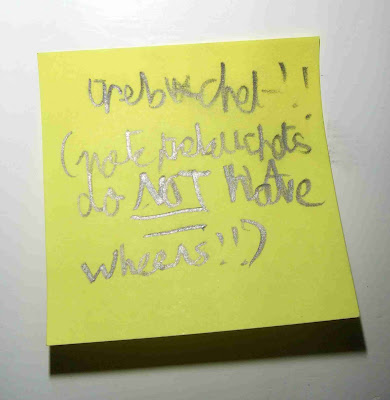 trebuchet!!
(note trebuchets
do NOT have
wheels!!)